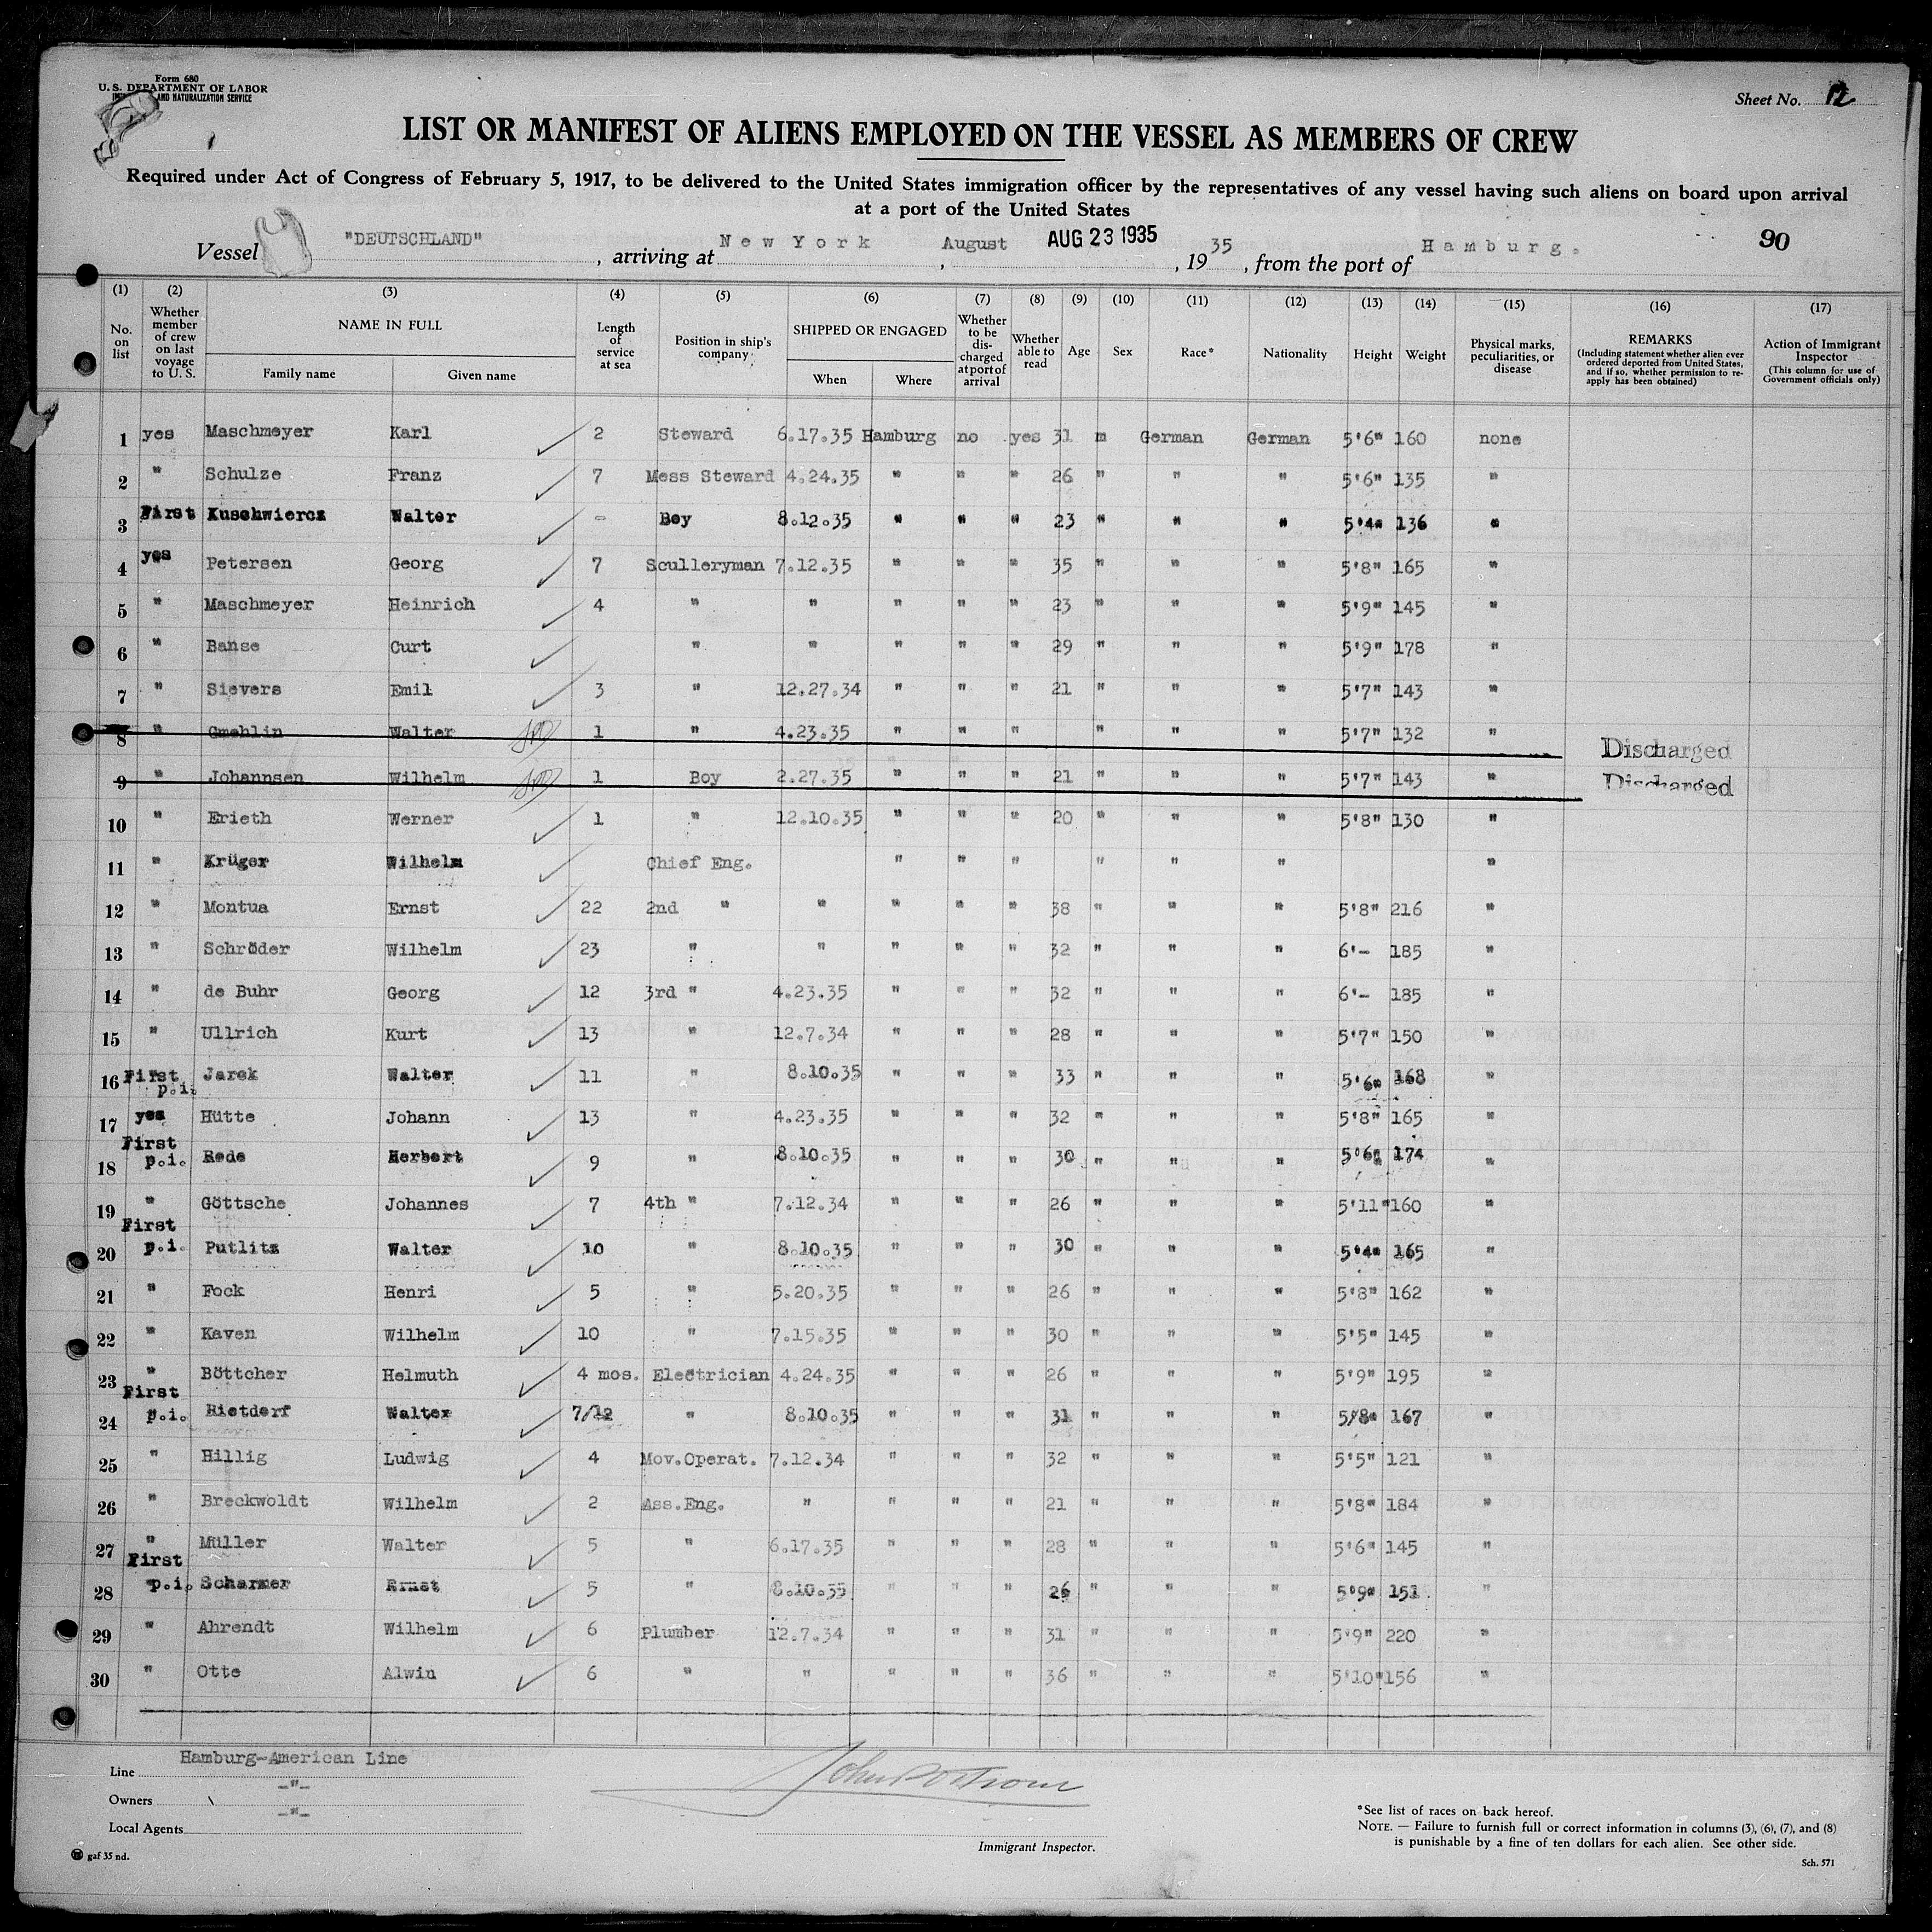 Form 680
U. S. DEPARTMENT OF LABOR
AND NATURALIZATION SERVICE
Sheet No. 12
LIST OR MANIFEST OF ALIENS EMPLOYED ON THE VESSEL AS MEMBERS OF CREW
Required under Act of Congress of February 5, 1917, to be delivered to the United States immigration officer by the representatives of any vessel having such aliens on board upon arrival
at a port of the United States
Vessel "DEUTSCHLAND", arriving at New York, August AUG 23 1935, 1935, from the port of Hamburg. 90
(1) (2) (3) (4) (5) (6) (7) (8) (9) (10) (11) (12) (13) (14) (15) (16) (17)
No. on list
Whether member of crew on last voyage to U. S.
NAME IN FULL
Family name
Given name
Length of service at sea
Position in ship's company
SHIPPED OR ENGAGED
When
Where
Whether to be discharged at port of arrival
Whether able to read
Age
Sex
Race*
Nationality
Height
Weight
Physical marks, peculiarities, or disease
REMARKS
(Including statement whether alien ever ordered deported from United States, and if so, whether permission to re-apply has been obtained)
Action of Immigrant Inspector
(This column for use of Government officials only)
1 yes Maschmeyer Karl 2 Steward 6.17.35 Hamburg no yes 31 m German German 5'6" 160 none
2 " Schulze Franz 7 Mess Steward 4.24.35 " " " 26 " " " 5'6" 135 "
3 First Kuschwiercz Walter - Boy 8.12.35 " " " 23 " " " 5'4" 136 "
4 yes Petersen Georg 7 Sculleryman 7.12.35 " " " 35 " " " 5'8" 165 "
5 " Maschmeyer Heinrich 4 " " " " " 23 " " " 5'9" 145 "
6 " Banse Curt " " " " " 29 " " " 5'9" 178 "
7 " Sievers Emil 3 " 12.27.34 " " " 21 " " " 5'7" 143 "
8 " Gmehlin Walter 1 " 4.23.35 " " " " " " 5'7" 132 " Discharged
9 " Johannsen Wilhelm 1 Boy 2.27.35 " " " 21 " " " 5'7" 143 " Discharged
10 " Erieth Werner 1 " 12.10.35 " " " 20 " " " 5'8" 130 "
11 " Krüger Wilhelm Chief Eng. " " " " " " "
12 " Montua Ernst 22 2nd " " " " " 38 " " " 5'8" 216 "
13 " Schröder Wilhelm 23 " " " " " 32 " " " 6'- 185 "
14 " de Buhr Georg 12 3rd " 4.23.35 " " " 32 " " " 6'- 185 "
15 " Ullrich Kurt 13 " 12.7.34 " " " 28 " " " 5'7" 150 "
16 First p.i. Jarek Walter 11 " 8.10.35 " " " 33 " " " 5'6" 168 "
17 yes Hütte Johann 13 " 4.23.35 " " " 32 " " " 5'8" 165 "
18 First p.i. Rede Herbert 9 " 8.10.35 " " " 30 " " " 5'6" 174 "
19 " Göttsche Johannes 7 4th " 7.12.34 " " " 26 " " " 5'11" 160 "
20 First p.i. Putlitz Walter 10 " 8.10.35 " " " 30 " " " 5'4" 165 "
21 " Fock Henri 5 " 5.20.35 " " " 26 " " " 5'8" 162 "
22 " Kaven Wilhelm 10 " 7.15.35 " " " 30 " " " 5'5" 145 "
23 " Böttcher Helmuth 4 mos. Electrician 4.24.35 " " " 26 " " " 5'9" 195 "
24 First p.i. Rietdorf Walter 7/12 " 8.10.35 " " " 31 " " " 5'8" 167 "
25 " Hillig Ludwig 4 Mov.Operat. 7.12.34 " " " 32 " " " 5'5" 121 "
26 " Breckwoldt Wilhelm 2 Ass.Eng. " " " " 21 " " " 5'8" 184 "
27 " Müller Walter 5 " 6.17.35 " " " 28 " " " 5'6" 145 "
28 First p.i. Scharmer Ernst 5 " 8.10.35 " " " 26 " " " 5'9" 151 "
29 " Ahrendt Wilhelm 6 Plumber 12.7.34 " " " 31 " " " 5'9" 220 "
30 " Otte Alwin 6 " " " " " 36 " " " 5'10" 156 "
Line Hamburg-American Line
Owners -"-
Local Agents -"-
Immigrant Inspector.
*See list of races on back hereof.
NOTE. — Failure to furnish full or correct information in columns (3), (6), (7), and (8)
is punishable by a fine of ten dollars for each alien. See other side.
gaf 35 nd.
Sch. 571